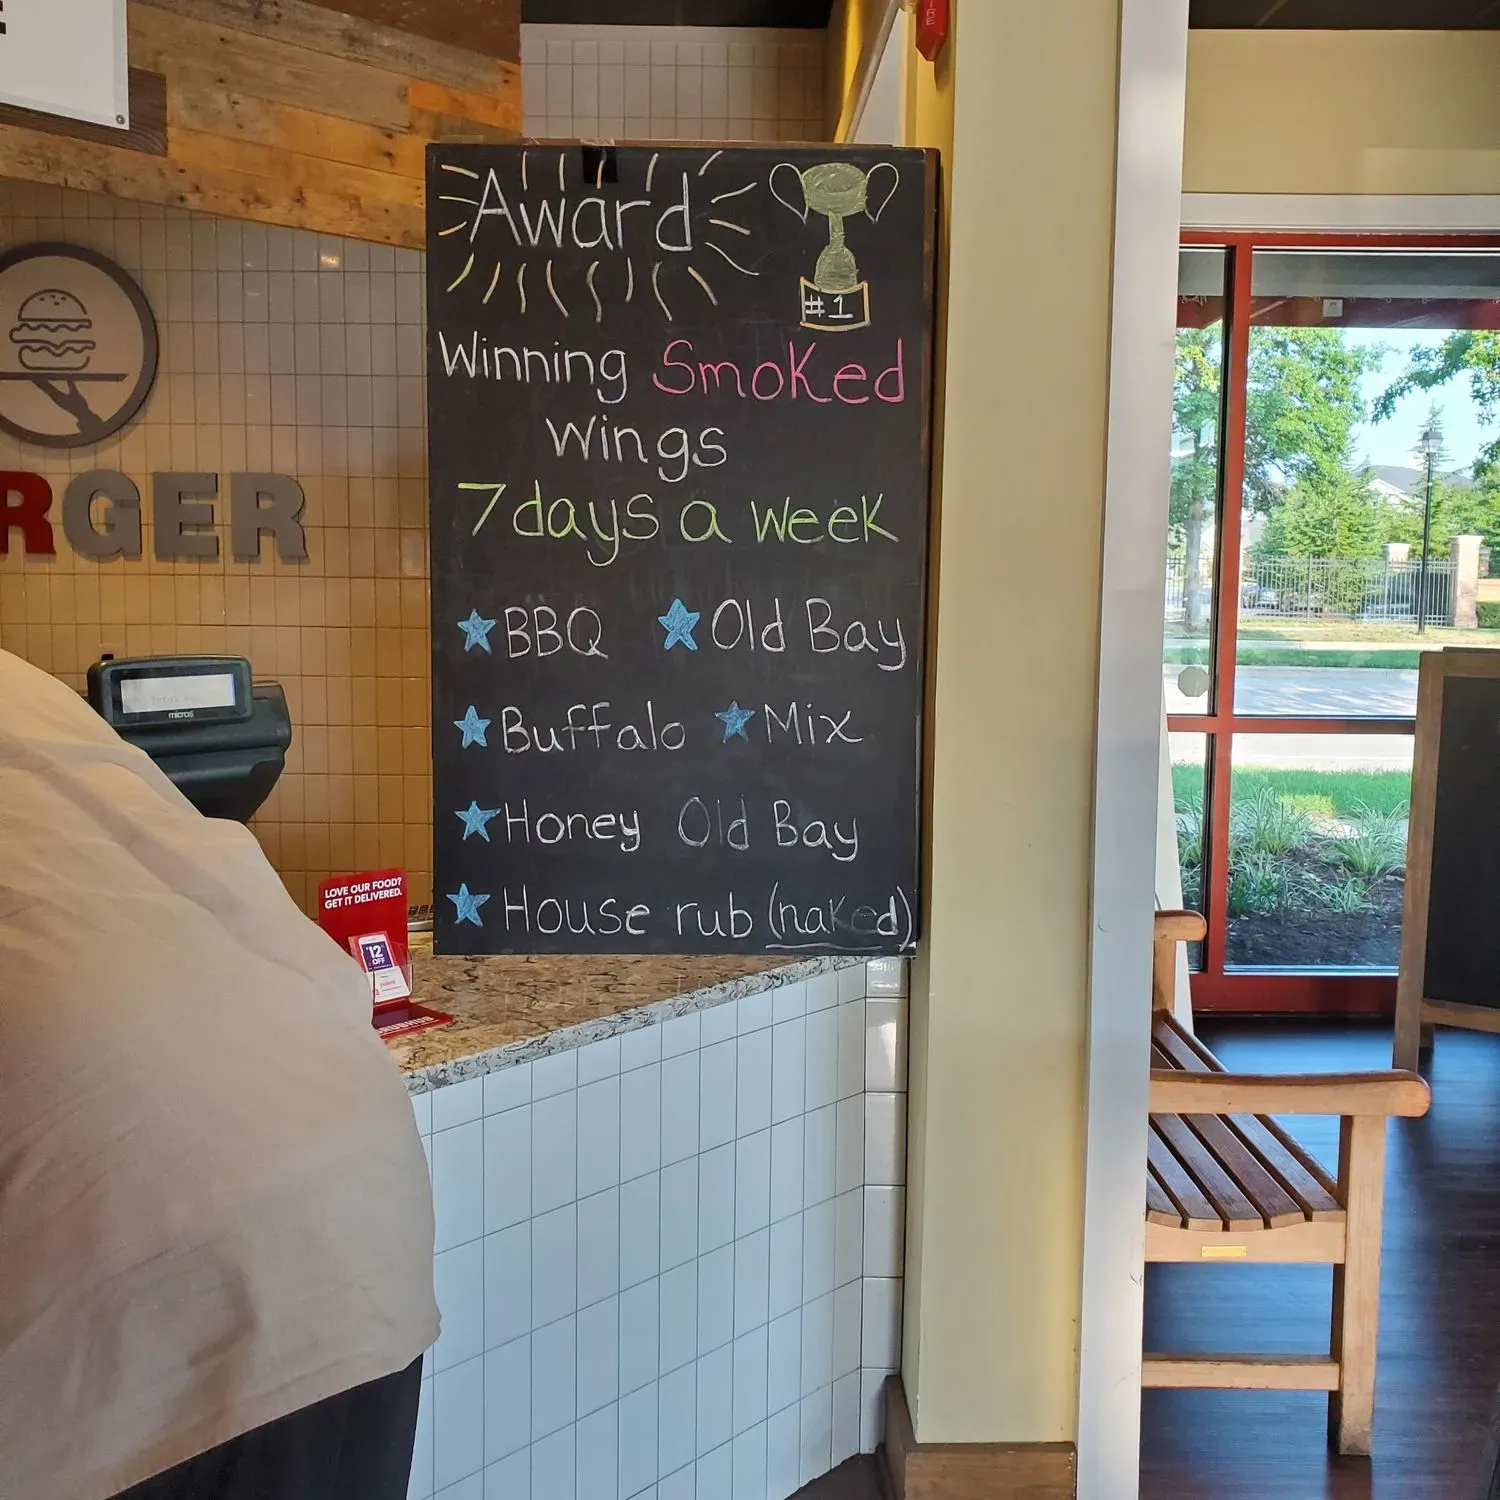 Award
#1
Winning Smoked
Wings
7 days a week
BBQ Old Bay
Buffalo Mix
Honey Old Bay
House rub (naked)
RGER
micros
LOVE OUR FOOD?
GET IT DELIVERED.
$12
OFF
GRUBHUB